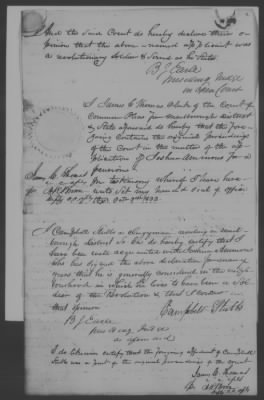 And the Said Court do hereby declare their o-
pinion that the above named applicant was
a revolutionary Soldier & Served as he States.
B J Earle
Presiding Judge
in open Court
I James C Thomas Clerk of the Court of
Common Pleas for Marlborough district
& State aforesaid do hereby certify that the fore-
going contains the original proceedings
of the Court in the matter of the ap-
plication of Joshua Ammons for a
pension
In testimony whereof I have here-
unto Set my hand & Seal of office
1832
I Campbell Stubbs a Clergyman residing in Marl-
borough district So Ca do hereby certify that I
have been well acquainted with Joshua Ammons
who has Signed the above declaration for many
years that he is generally considered in the neigh-
bourhood in which he lives to have been a Sol-
dier of the Revolution & that I concur in
that opinion
Campbell Stubbs
B J Earle
Presiding Judge
as aforesaid
I do likewise certify that the foregoing affidavit of Campbell
Stubbs was a part of the original proceedings of the court